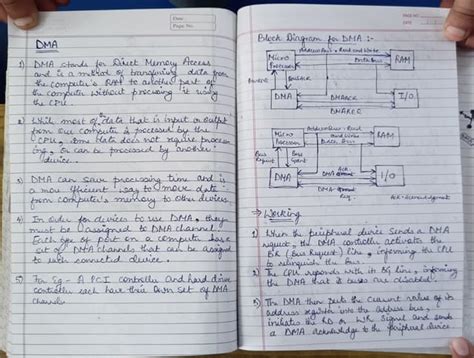 Date
Page No.
DMA
1) DMA stands for Direct Memory Access
and is a method of transferring data from
the computer's RAM to another part of
the computer without processing it using
the CPU.
2) While most of data that is input or output
from our computer is processed by the
CPU, some data does not require process
ing, or can be processed by another
device.
3) DMA can save processing time and is
a more efficient way to move data
from computer's memory to other devices.
4) In order for devices to use DMA, they
must be assigned to DMA channel.
Each type of port on a computer has a
set of DMA channels that can be assigned
to each connected device.
5) For eg - A PCI controller and hard drive
controller each have their own set of DMA
channels
PAGE NO.
Block Diagram for DMA :-
Address Bus, Read and Write
Micro
Processor
Data Bus
RAM
BUSREQ
BUSACK
DMA
DMAACK
I/O
DMAREQ
Address Bus - Read
Micro
Processor
and Write
Data Bus
RAM
Bus
Request
Bus
Grant
DMA
DMA
Ack
I/O
DMA
Req.
Ack = Acknowledgement
→ Working
1) When the peripheral device sends a DMA
request, the DMA controller activates the
BR (Bus Request) line, informing the CPU
to relinquish the bus.
2) The CPU responds with its BG line, informing
the DMA that its buses are disabled.
3) The DMA then puts the current value of its
address register into the address bus,
initiates the RD or WR signal and sends
a DMA acknowledge to the peripheral device